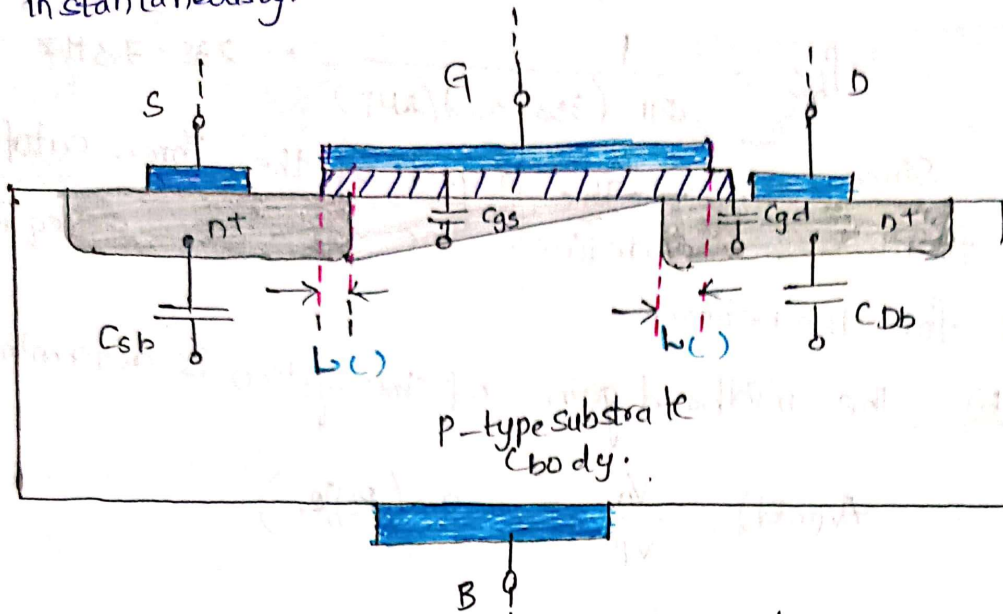 instantaneously.
G
D
S
n+
Cgs
Cgd
n+
Csb
CDb
L()
L()
P-type substrate
(body.
B